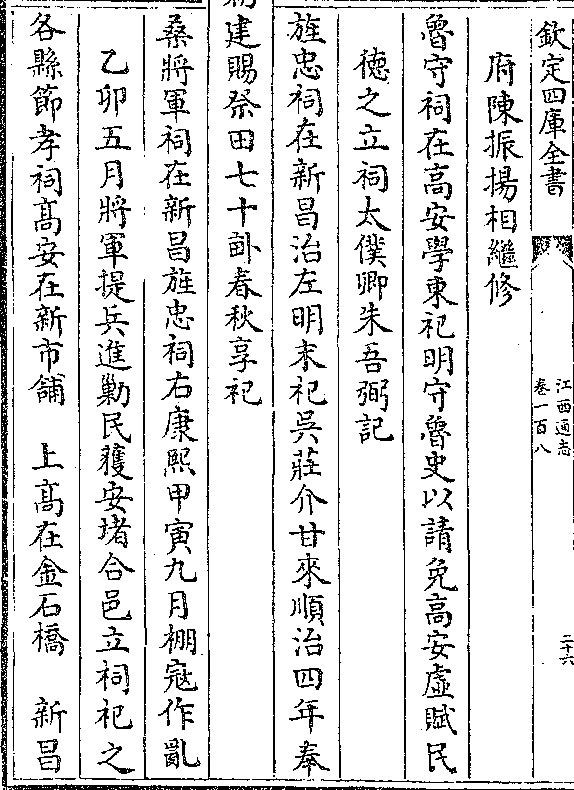 欽定四庫全書
江西通志
卷一百八
二十六
府陳振揚相繼修
魯守祠在高安學東祀明守魯史以請免高安虛賦民
德之立祠太僕卿朱吾弼記
旌忠祠在新昌治左明末祀吳莊介甘來順治四年奉
建賜祭田七十畝春秋享祀
桑將軍祠在新昌旌忠祠右康熙甲寅九月棚寇作亂
乙卯五月將軍提兵進勦民獲安堵合邑立祠祀之
各縣節孝祠髙安在新市舖　上髙在金石橋　新昌